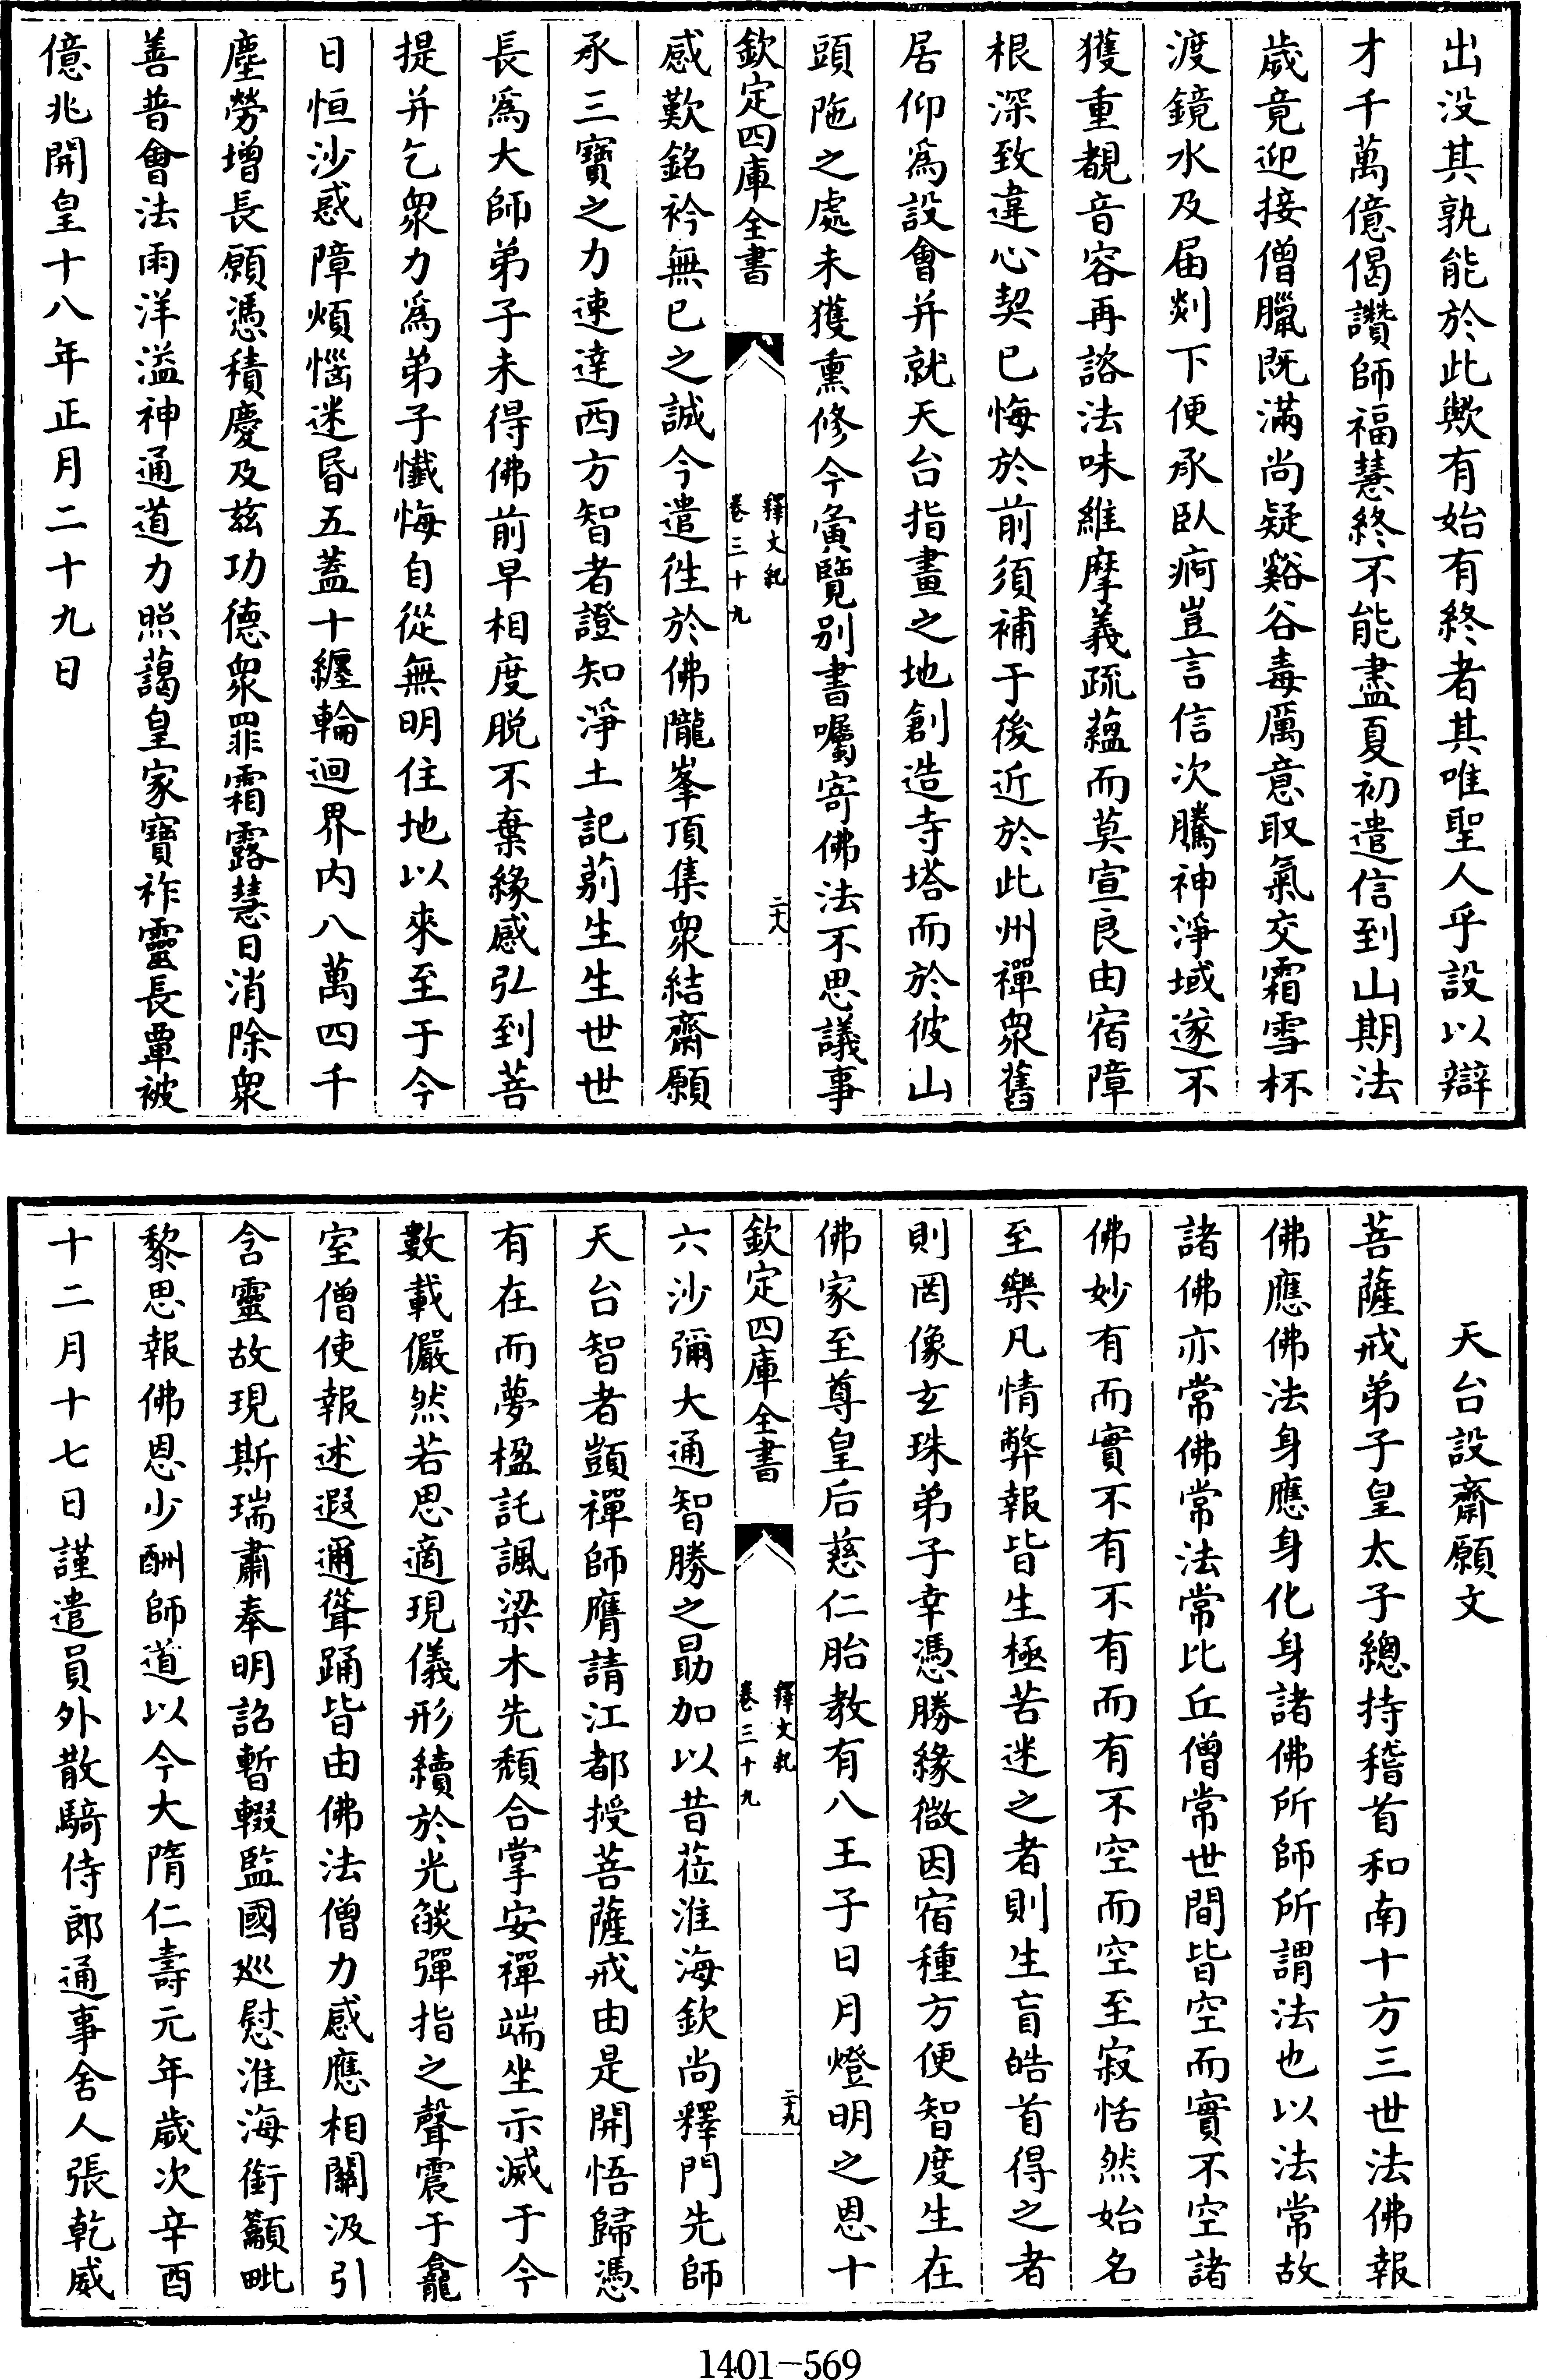 出没其孰能於此歟有始有終者其唯聖人乎設以辯
才千萬億偈讚師福慧終不能盡夏初遣信到山期法
歲竟迎接僧臘既滿尚疑谿谷毒厲意取氣交霜雪杯
渡鏡水及届剡下便承臥痾豈言信次騰神淨域遂不
獲重覩音容再諮法味維摩義疏蘊而莫宣良由宿障
根深致違心契已悔於前須補于後近於此州禪衆舊
居仰為設會并就天台指畫之地創造寺塔而於彼山
頭陁之處未獲熏修今寅覽别書囑寄佛法不思議事
欽定四庫全書
釋文紀
卷三十九
二十八
感歎銘衿無已之誠今遣徃於佛隴峯頂集衆結齋願
承三寶之力速達西方智者證知淨土記莂生生世世
長為大師弟子未得佛前早相度脱不棄緣感弘到菩
提并乞衆力為弟子懺悔自從無明住地以來至于今
日恒沙惑障煩惱迷昏五蓋十纏輪迴界内八萬四千
塵勞增長願憑積慶及兹功德衆罪霜露慧日消除衆
善普會法雨洋溢神通道力照藹皇家寶祚靈長覃被
億兆開皇十八年正月二十九日
天台設齋願文
菩薩戒弟子皇太子總持稽首和南十方三世法佛報
佛應佛法身應身化身諸佛所師所謂法也以法常故
諸佛亦常佛常法常比丘僧常世間皆空而實不空諸
佛妙有而實不有不有而有不空而空至寂恬然始名
至樂凡情弊報皆生極苦迷之者則生盲皓首得之者
則罔像玄珠弟子幸憑勝緣微因宿種方便智度生在
佛家至尊皇后慈仁胎教有八王子日月燈明之恩十
欽定四庫全書
釋文紀
卷三十九
二十九
六沙彌大通智勝之勗加以昔莅淮海欽尚釋門先師
天台智者顗禪師膺請江都授菩薩戒由是開悟歸憑
有在而夢楹託諷梁木先頹合掌安禪端坐示滅于今
數載儼然若思適現儀形續於光燄彈指之聲震于龕
室僧使報述遐邇聳踊皆由佛法僧力感應相關汲引
含靈故現斯瑞肅奉明詔暫輟監國廵慰淮海銜籲毗
黎思報佛恩少酬師道以今大隋仁壽元年歲次辛酉
十二月十七日謹遣員外散騎侍郎通事舍人張乾威
1401—569